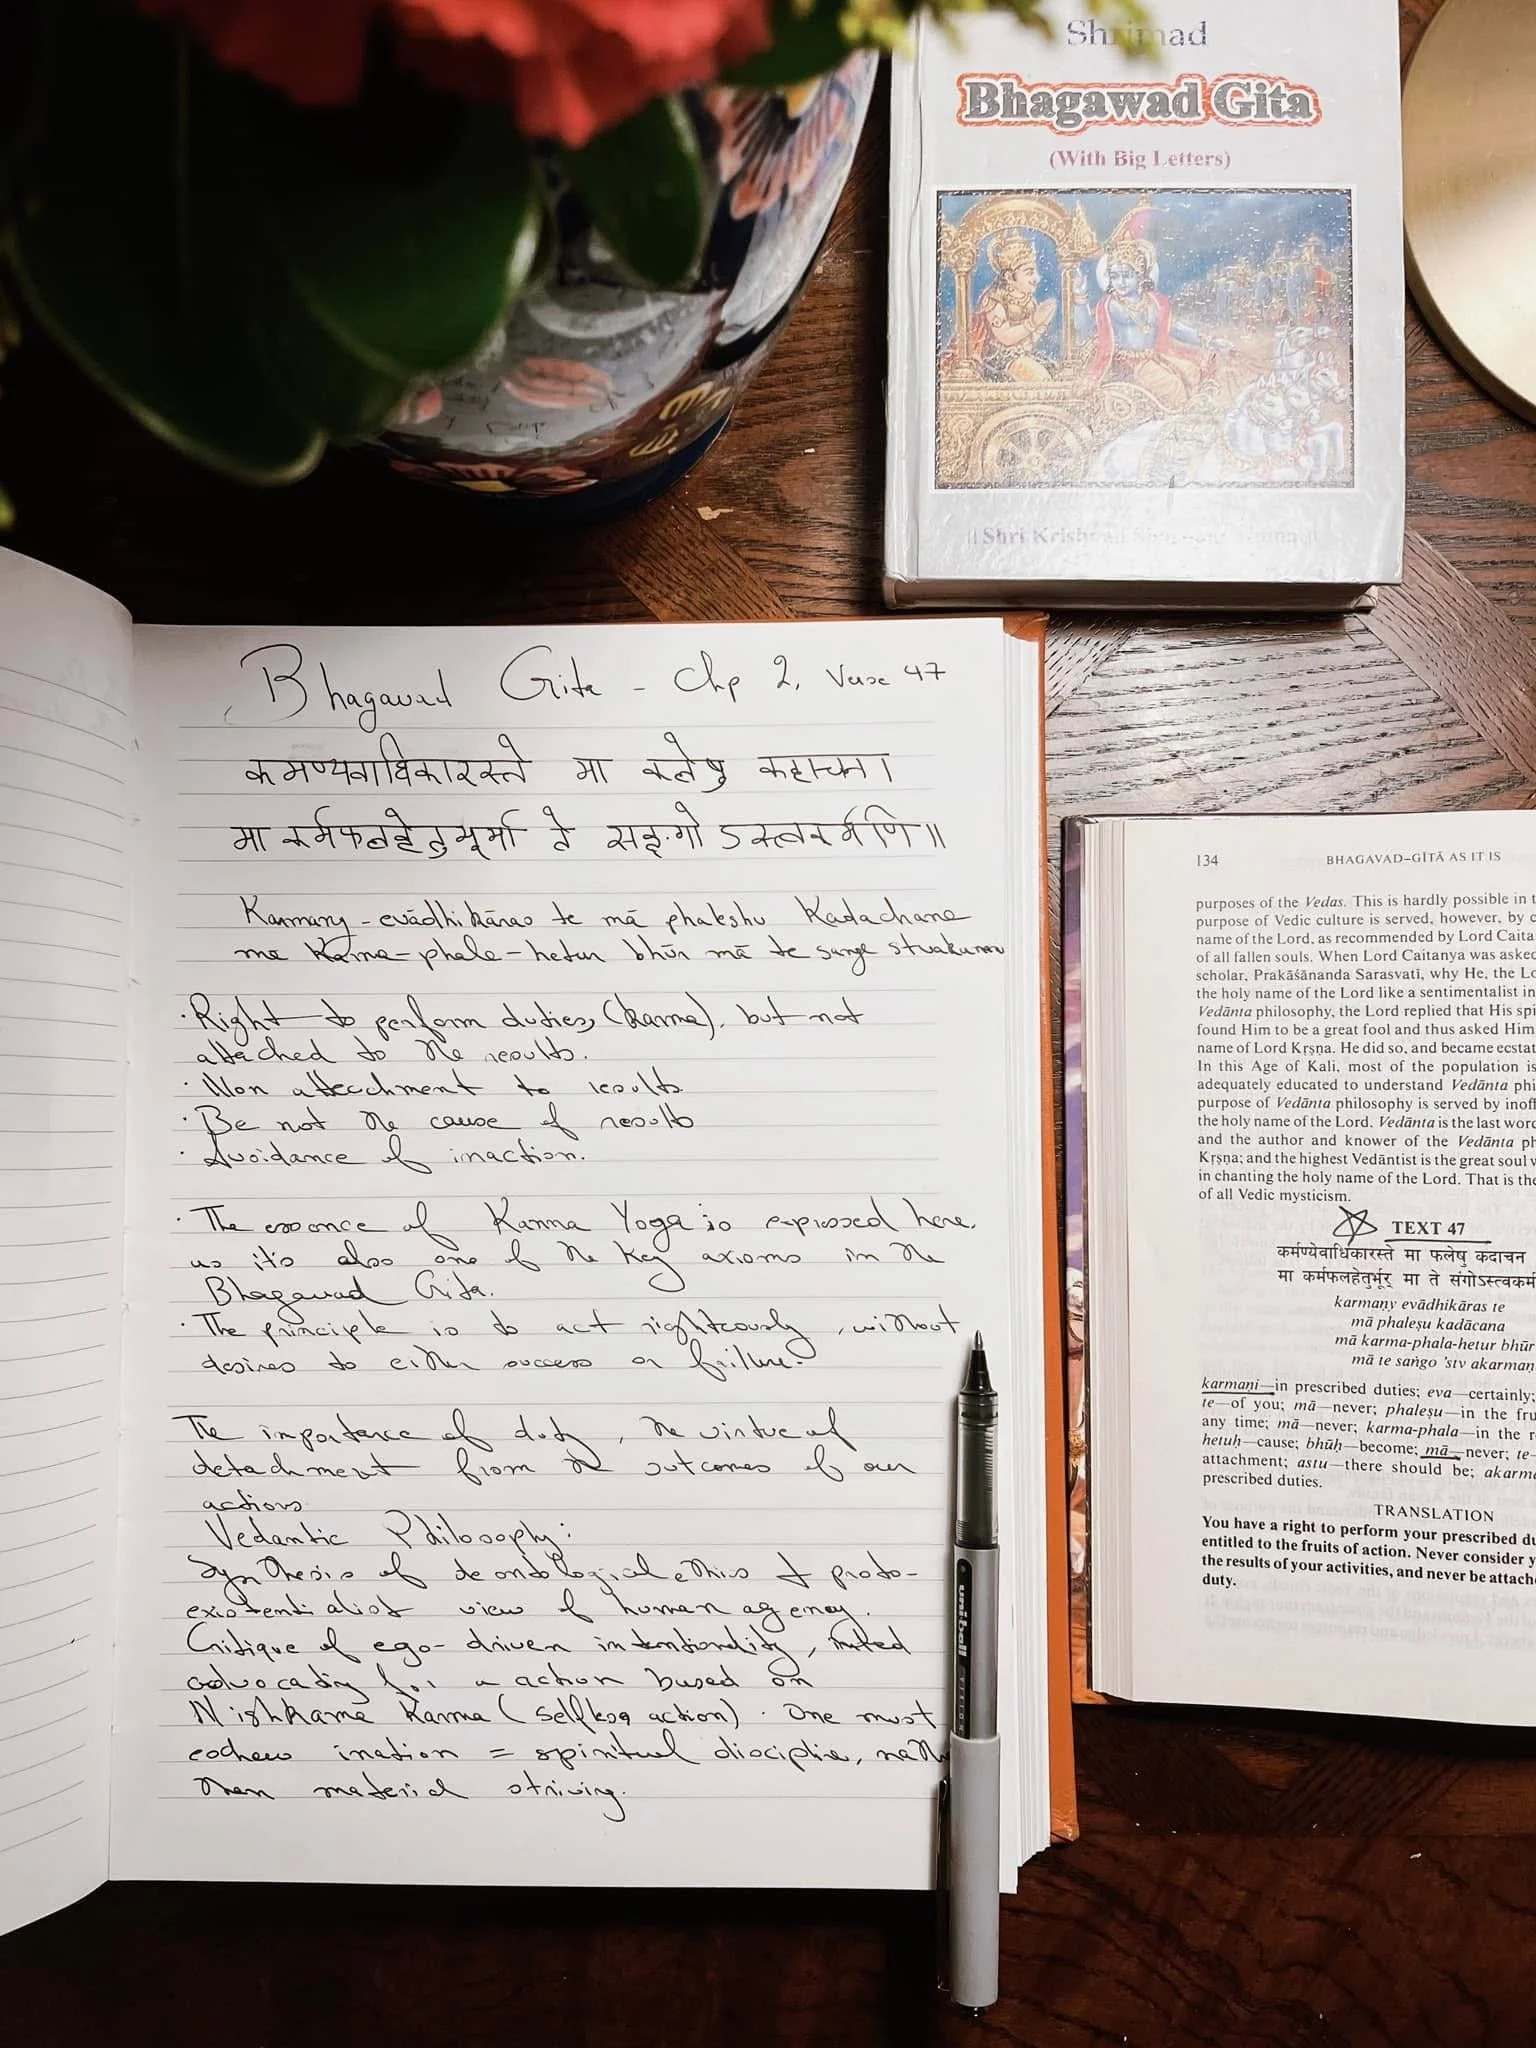 Shrimad
Bhagawad Gita
(With Big Letters)
|| Shri Krishnah
Bhagavad Gita - Chp 2, Verse 47
कमण्यवाधिकारस्ते मा कलेषु कदाचन।
मा कर्मफलहेतुभूर्मा ते सङ्गोऽस्त्वकर्मणि॥
Karmany-evādhikāras te mā phaleshu Kadachana
ma Karma-phala-hetur bhūr mā te sango stvakarma
· Right to perform duties, (karma), but not
attached to the results.
· Non attachment to results
· Be not the cause of results
· Avoidance of inaction.
· The essence of Karma Yoga is expressed here,
as it's also one of the key axioms in the
Bhagavad Gita.
· The principle is to act righteously, without
desires to either success or failure.
The importance of duty, the virtue of
detachment from the outcomes of our
actions
Vedantic Philosophy:
Synthesis of deontological ethics & proto-
existentialist view of human agency.
Critique of ego-driven intentionality,
advocating for a action based on
Nishkama Karma (selfless action). One must
eschew ination = spiritual discipline,
than material striving.
uniball
134
BHAGAVAD-GĪTĀ AS IT IS
purposes of the Vedas. This is hardly possible in
purpose of Vedic culture is served, however, by
name of the Lord, as recommended by Lord
of all fallen souls. When Lord Caitanya was asked
scholar, Prakāśānanda Sarasvatī, why He, the
the holy name of the Lord like a sentimentalist
Vedānta philosophy, the Lord replied that His
found Him to be a great fool and thus asked Him
name of Lord Kṛṣṇa. He did so, and became
In this Age of Kali, most of the population is
adequately educated to understand Vedānta
purpose of Vedānta philosophy is served by
the holy name of the Lord. Vedānta is the last
and the author and knower of the Vedānta
Kṛṣṇa; and the highest Vedāntist is the great soul
in chanting the holy name of the Lord. That is the
of all Vedic mysticism.
TEXT 47
कर्मण्येवाधिकारस्ते मा फलेषु कदाचन
मा कर्मफलहेतुर्भूर् मा ते संगोऽस्त्वकर्म
karmaṇy evādhikāras te
mā phaleṣu kadācana
mā karma-phala-hetur bhūr
mā te saṅgo 'stv akarmaṇ
karmaṇi—in prescribed duties; eva—certainly;
te—of you; mā—never; phaleṣu—in the
any time; mā—never; karma-phala—in the
hetuḥ—cause; bhūḥ—become; mā—never; te—
attachment; astu—there should be;
prescribed duties.
TRANSLATION
You have a right to perform your prescribed
entitled to the fruits of action. Never consider
the results of your activities, and never be
duty.